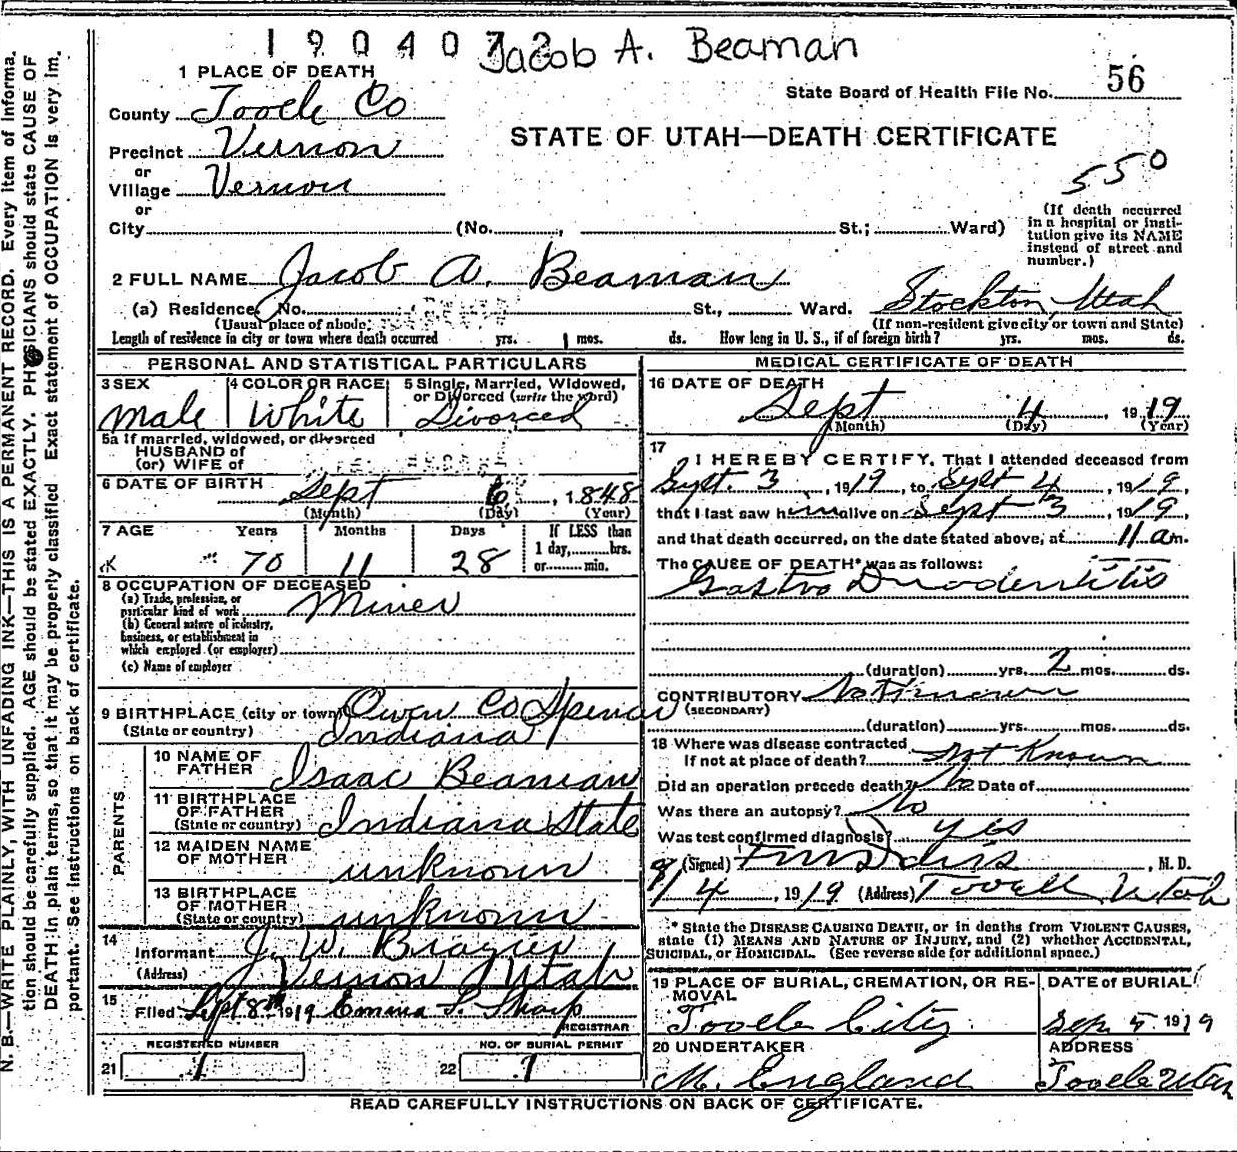 1904072
Jacob A. Beaman
1 PLACE OF DEATH
State Board of Health File No. 56
County Tooele Co
STATE OF UTAH—DEATH CERTIFICATE
Precinct Vernon
or
Village Vernon
550
or
City (No. , St.; Ward)
(If death occurred in a hospital or insti-
tution give its NAME
instead of street and
number.)
2 FULL NAME Jacob A. Beaman
(a) Residence, No. St., Ward. Stockton, Utah
(Usual place of abode) (If non-resident give city or town and State)
Length of residence in city or town where death occurred yrs. 1 mos. ds. How long in U. S., if of foreign birth? yrs. mos. ds.
PERSONAL AND STATISTICAL PARTICULARS
3 SEX
Male
4 COLOR OR RACE
White
5 Single, Married, Widowed,
or Divorced (write the word)
Divorced
5a If married, widowed, or divorced
HUSBAND of
(or) WIFE of
6 DATE OF BIRTH Sept 6, 1848
(Month) (Day) (Year)
7 AGE Years Months Days If LESS than
1 day, hrs.
70 11 28 or min.
8 OCCUPATION OF DECEASED
(a) Trade, profession, or
particular kind of work Miner
(b) General nature of industry,
business, or establishment in
which employed (or employer)
(c) Name of employer
9 BIRTHPLACE (city or town) Owen Co Spencer
(State or country) Indiana
PARENTS
10 NAME OF
FATHER Isaac Beaman
11 BIRTHPLACE
OF FATHER
(State or country) Indiana State
12 MAIDEN NAME
OF MOTHER unknown
13 BIRTHPLACE
OF MOTHER
(State or country) unknown
14
Informant J. W. Brazier
(Address) Vernon Utah
15
Filed Sept 8th 1919 Emma S. Sharp
REGISTRAR
REGISTERED NUMBER
21 1
NO. OF BURIAL PERMIT
22 1
MEDICAL CERTIFICATE OF DEATH
16 DATE OF DEATH
Sept 4, 1919
(Month) (Day) (Year)
17
I HEREBY CERTIFY, That I attended deceased from
Sept. 3, 1919, to Sept 4, 1919,
that I last saw him alive on Sept 3, 1919,
and that death occurred, on the date stated above, at 11 am.
The CAUSE OF DEATH* was as follows:
Gastro Duodentitis
(duration) yrs. 2 mos. ds.
CONTRIBUTORY Not Known
(SECONDARY)
(duration) yrs. mos. ds.
18 Where was disease contracted
If not at place of death? Not Known
Did an operation precede death? No Date of
Was there an autopsy? No
Was test confirmed diagnosis? yes
(Signed) , M. D.
9/4, 1919 (Address) Tooele Utah
* State the DISEASE CAUSING DEATH, or in deaths from VIOLENT CAUSES,
state (1) MEANS AND NATURE OF INJURY, and (2) whether ACCIDENTAL,
SUICIDAL, or HOMICIDAL. (See reverse side for additional space.)
19 PLACE OF BURIAL, CREMATION, OR RE-
MOVAL
Tooele City
DATE of BURIAL
Sep. 5 1919
20 UNDERTAKER
M. England
ADDRESS
Tooele Utah
READ CAREFULLY INSTRUCTIONS ON BACK OF CERTIFICATE.
N. B.—WRITE PLAINLY, WITH UNFADING INK—THIS IS A PERMANENT RECORD. Every item of informa-
tion should be carefully supplied. AGE should be stated EXACTLY. PHYSICIANS should state CAUSE OF
DEATH in plain terms, so that it may be properly classified. Exact statement of OCCUPATION is very im-
portant. See instructions on back of certificate.